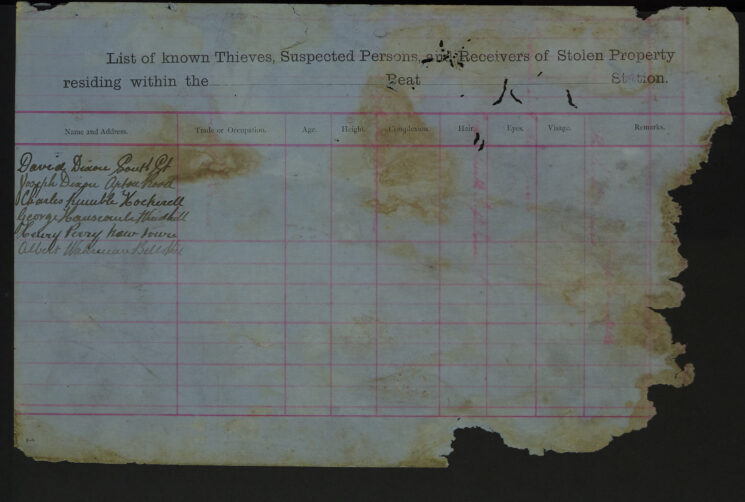 List of known Thieves, Suspected Persons, and Receivers of Stolen Property
residing within the Beat Station.
Name and Address. Trade or Occupation. Age. Height. Complexion. Hair. Eyes. Visage. Remarks.
David Dixon South St
Joseph Dixon
Charles Hockerell
George Windhill
Henry Perry New Town
Albert